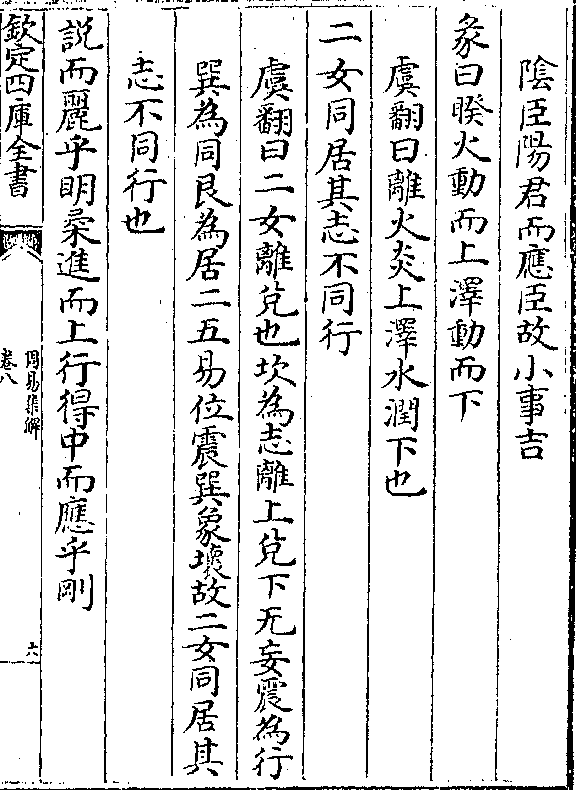 陰臣陽君而應臣故小事吉
彖曰睽火動而上澤動而下
虞翻曰離火炎上澤水潤下也
二女同居其志不同行
虞翻曰二女離兌也坎為志離上兌下无妄震為行
巽為同艮為居二五易位震巽象壞故二女同居其
志不同行也
説而麗乎明柔進而上行得中而應乎剛
欽定四庫全書
周易集解
卷八
六